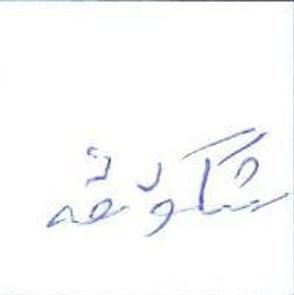 شکوفه